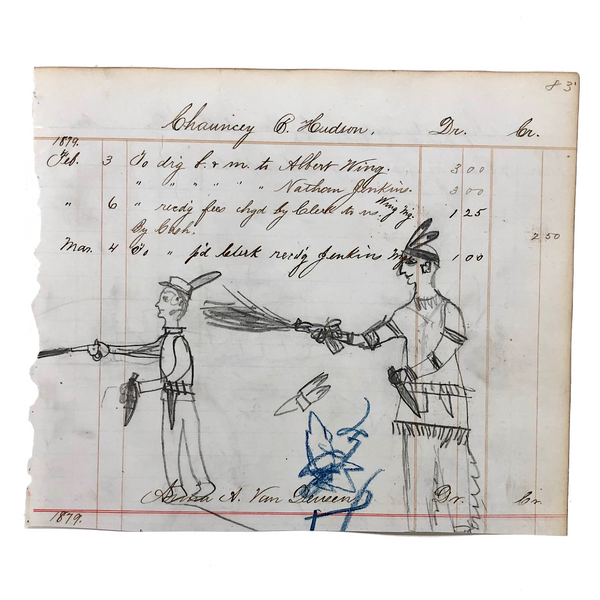 83
Chauncey B. Hudson, Dr. Cr.
1879.
Feb. 3 To drg C. & m. to Albert Wing. 3 00
" " " " " " Nathan Jenkins. 3 00
" 6 " recdg fees chgd by Clerk to us. Wing Mg. 1 25
By Cash. 2 50
Mar. 4 To " p'd Clerk recd'g Jenkin Mg. 1 00
A. Van Deusen Dr. Cr.
1879.